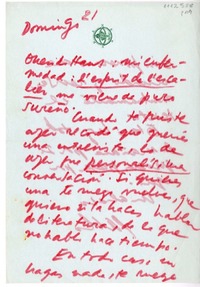 Domingo 21
mi enfer-
medad: l'esprit de l'esca-
lier no siendo puro
sureño.
Cuando te fuiste
ayer recordé que quería
una entrevista. Lo de
ayer fue personalísima
conversación. Si quieres
una te ruego
quiero si la haces, hablar
de literatura de lo que
no hablo hace tiempo.
En todo caso, no
hagas nada, te ruego